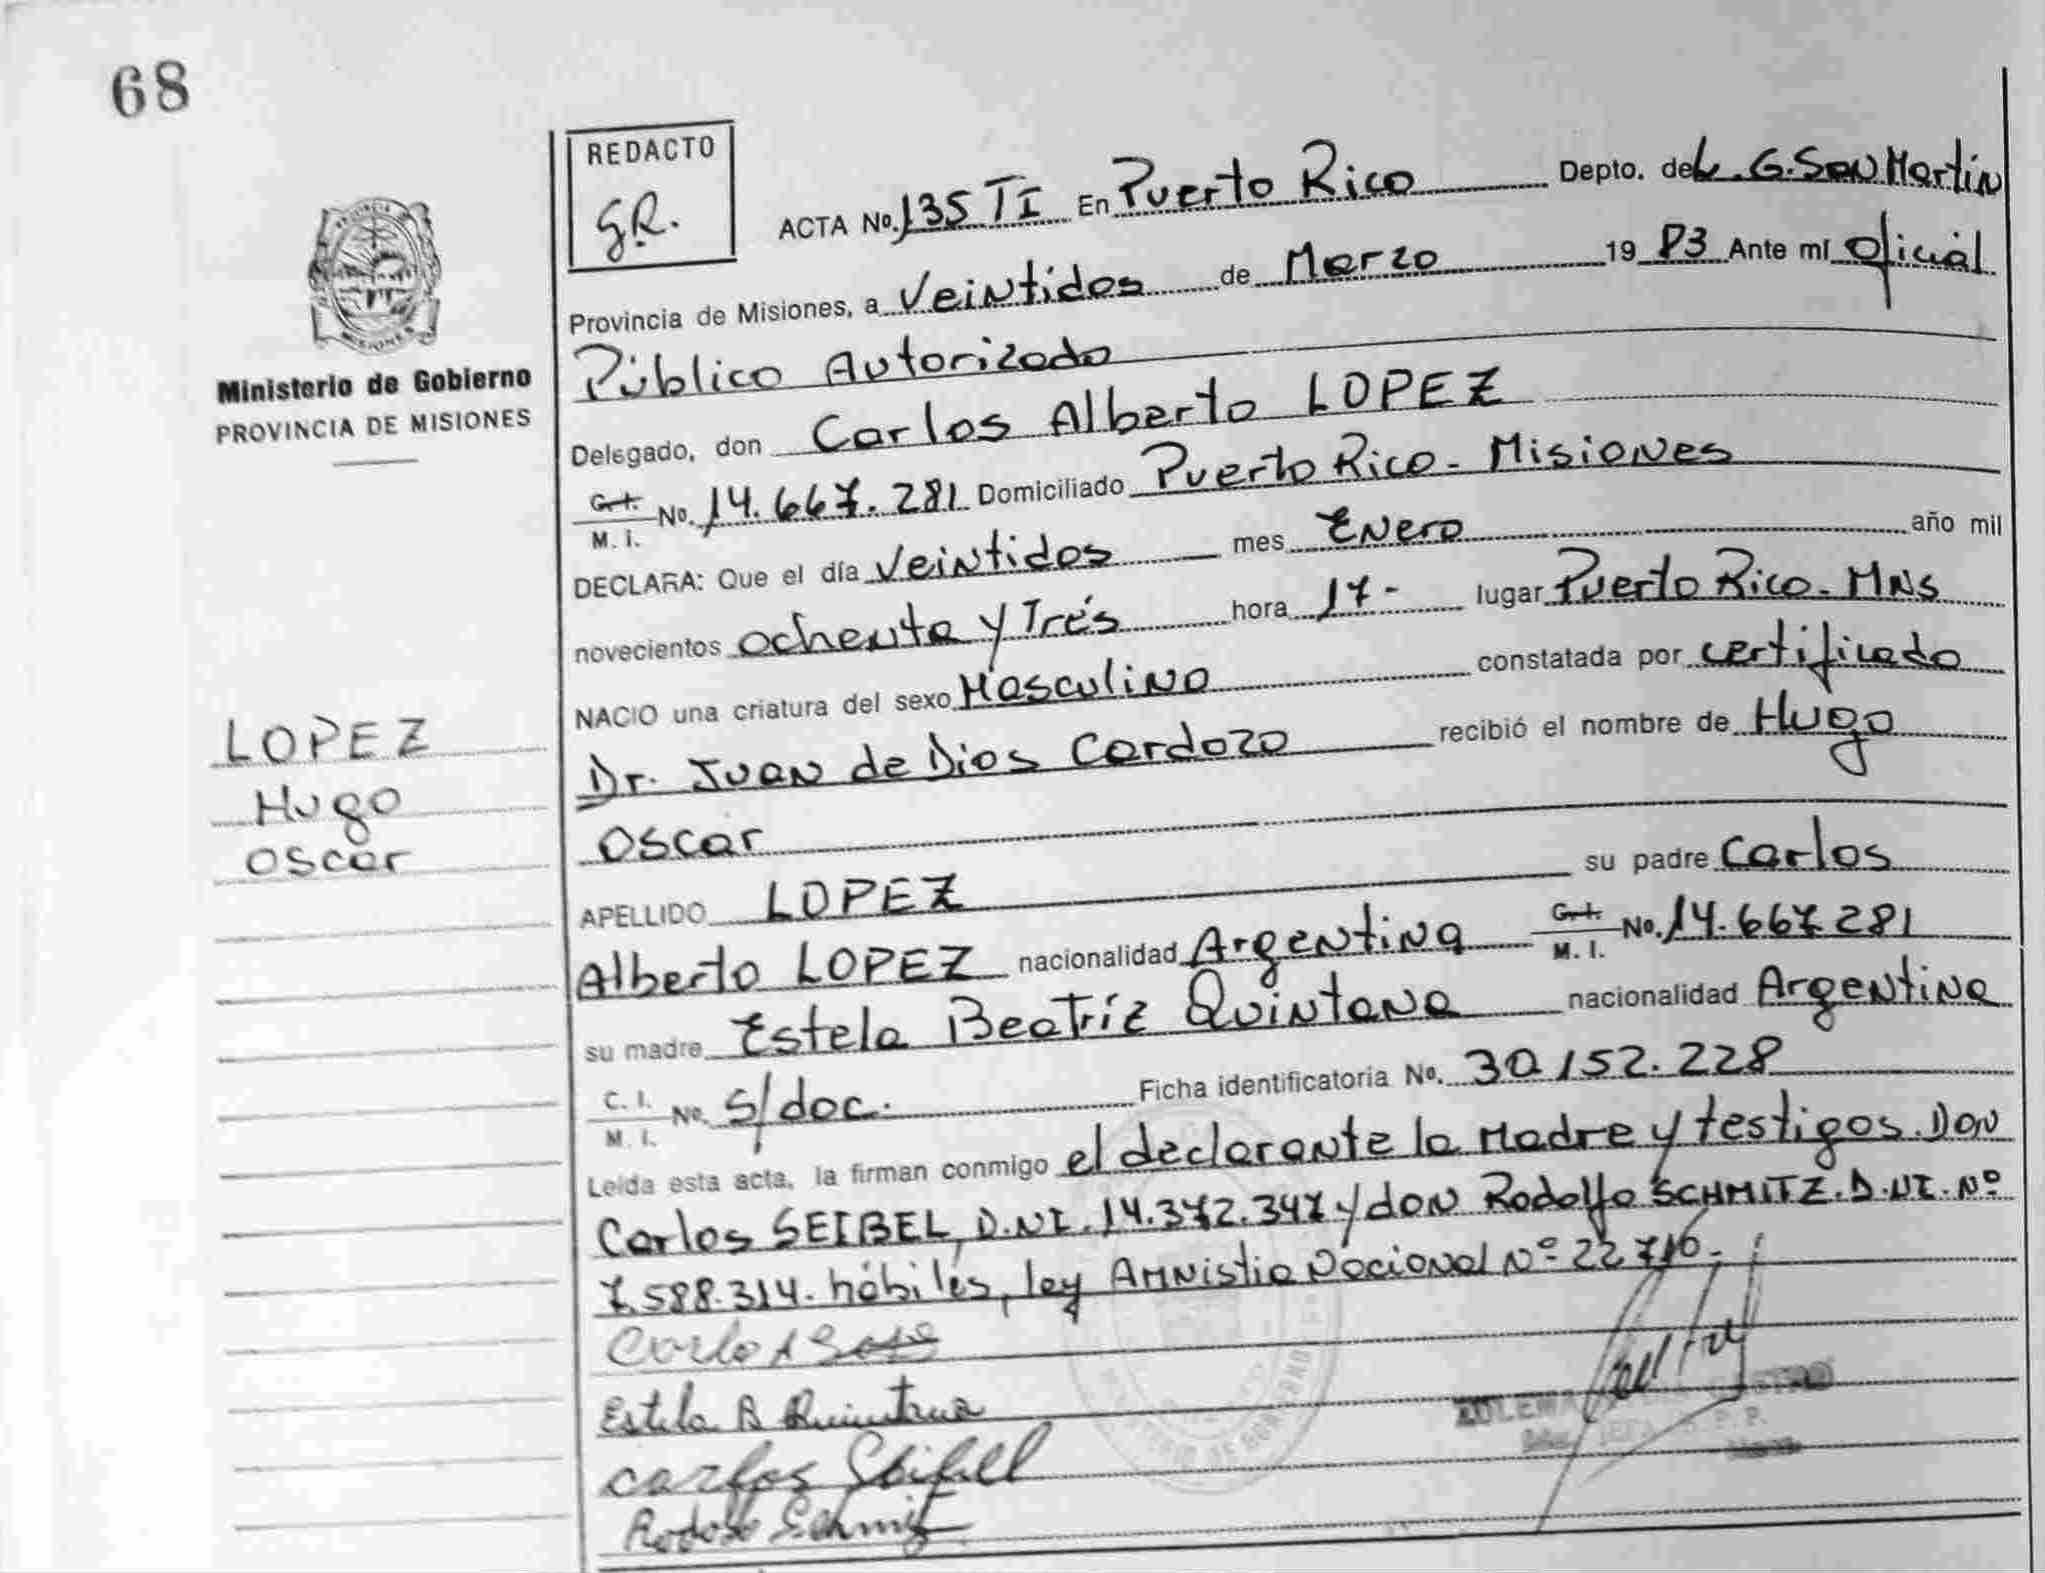 68
REDACTO
G.R.
ACTA No. 135 TI En Puerto Rico Depto. de L. G. San Martin
Provincia de Misiones, a Veintidos de Marzo 19 83 Ante mí Oficial
Público Autorizado
Delegado, don Carlos Alberto LOPEZ
C. I. M. I. No. 14.667.281 Domiciliado Puerto Rico - Misiones
DECLARA: Que el día Veintidos mes Enero año mil
novecientos ochenta y Trés hora 17- lugar Puerto Rico - MNS
NACIO una criatura del sexo Masculino constatada por certificado
Dr. Juan de Dios Cardozo recibió el nombre de Hugo
Oscar
APELLIDO LOPEZ su padre Carlos
Alberto LOPEZ nacionalidad Argentina C. I. M. I. No. 14.667.281
su madre Estela Beatríz Quintana nacionalidad Argentina
C. I. M. I. No. S/doc. Ficha identificatoria No. 30.152.228
Leída esta acta, la firman conmigo el declarante la Madre y testigos. Don
Carlos SEIBEL, D.NI. 14.372.347 y don Rodolfo SCHMITZ. D.NI. Nº
7.588.314. hábiles, ley Amnistia Nacional Nº 22.716.-
Estela B Quintana
Carlos Seibel
Rodolfo Schmitz
Ministerio de Gobierno
PROVINCIA DE MISIONES
LOPEZ
Hugo
Oscar